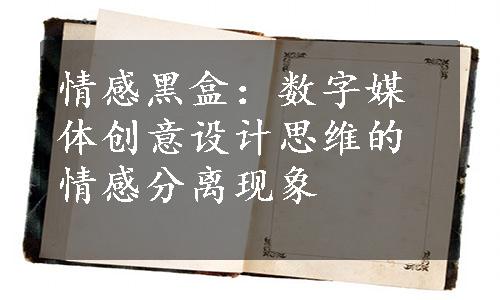 情感黑盒：数字媒
体创意设计思维的
情感分离现象